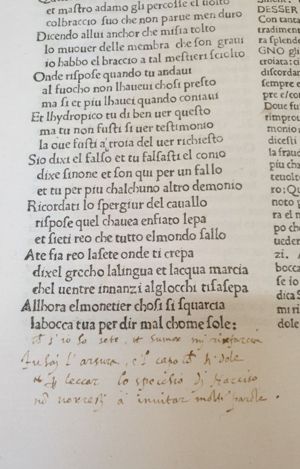 et mastro adamo gli percosse el uolto
colbraccio suo che non parue men duro
Dicendo allui anchor che misia tolto
lo muouer delle membra che son graui
io habbo el braccio a tal mestieri sciolto
Onde rispose quando tu andaui
al fuocho non lhaueui chosi presto
ma si et piu lhaueui quando coniaui
Et lhydropico tu di ben uer questo
ma tu non fusti si uer testimonio
la oue fusti a troia del uer richiesto
Sio dixi el falso et tu falsasti el conio
dixe sinone et son qui per un fallo
et tu per piu chalchuno altro demonio
Ricordati lo spergiur del cauallo
rispose quel chauea enfiato lepa
et sieti reo che tutto elmondo sallo
Ate fia reo lasete onde ti crepa
dixel grecho lalingua et lacqua marcia
chel uentre innanzi alglocchi tisasepa
Allhora elmonetier chosi si squarcia
labocca tua per dir mal chome sole:
s'io ho sete, et humor mi rinfarcia
Tu hai l'arsura, e 'l capo ti dole
leccar lo specchio di Narciso
nõ uorresti a inuitar molte parole
DESSER
Con tanta
tradimen
ra splende
GNO gli
croiata: ci
discordar
sempre e
pre e/co
Doue fu
rimprou
mondo
dicesti
la frau
pre
ro:
noto
ra el
po ch
uede
zi. A
bocca
se io
dici
mi ri
dole